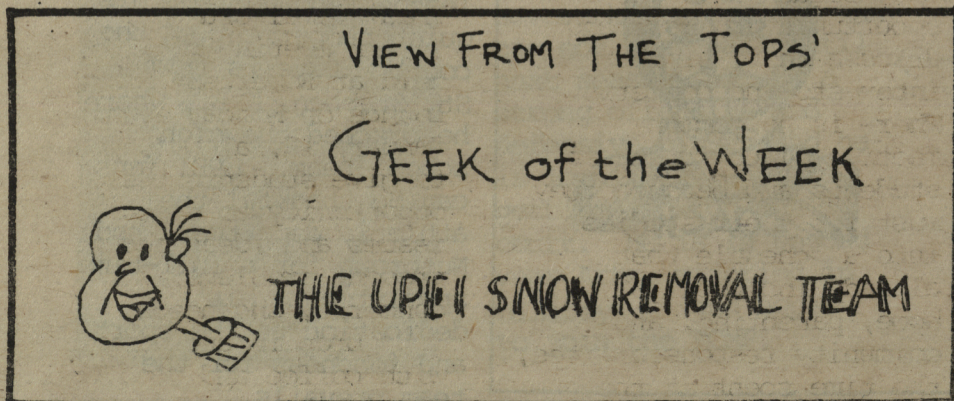 VIEW FROM THE TOPS'
GEEK of the WEEK
THE UPEI SNOW REMOVAL TEAM